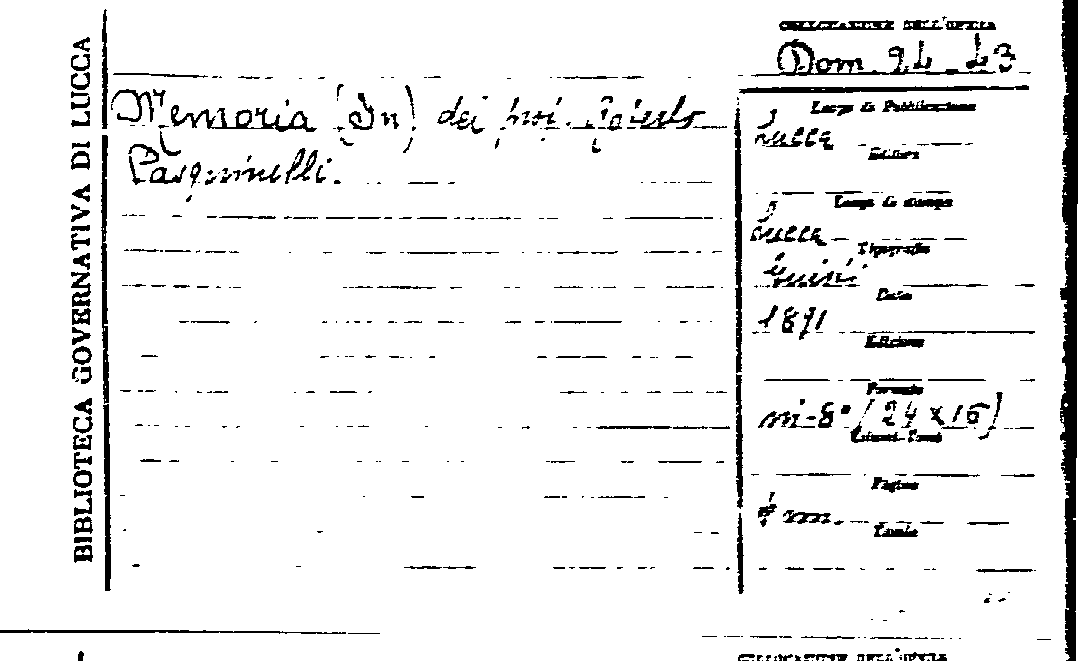 BIBLIOTECA GOVERNATIVA DI LUCCA
COLLOCAZIONE DELL'OPERA
Dom. 24 43
Memoria (In) del
Pasquinelli.
Luogo di Pubblicazione
Lucca
Editore
Luogo di stampa
Lucca
Tipografia
Giusti
Data
1891
Edizione
Formato
in-8° (24 x 16)
Volumi-Tomi
Pagine
Tavole
COLLOCAZIONE DELL'OPERA